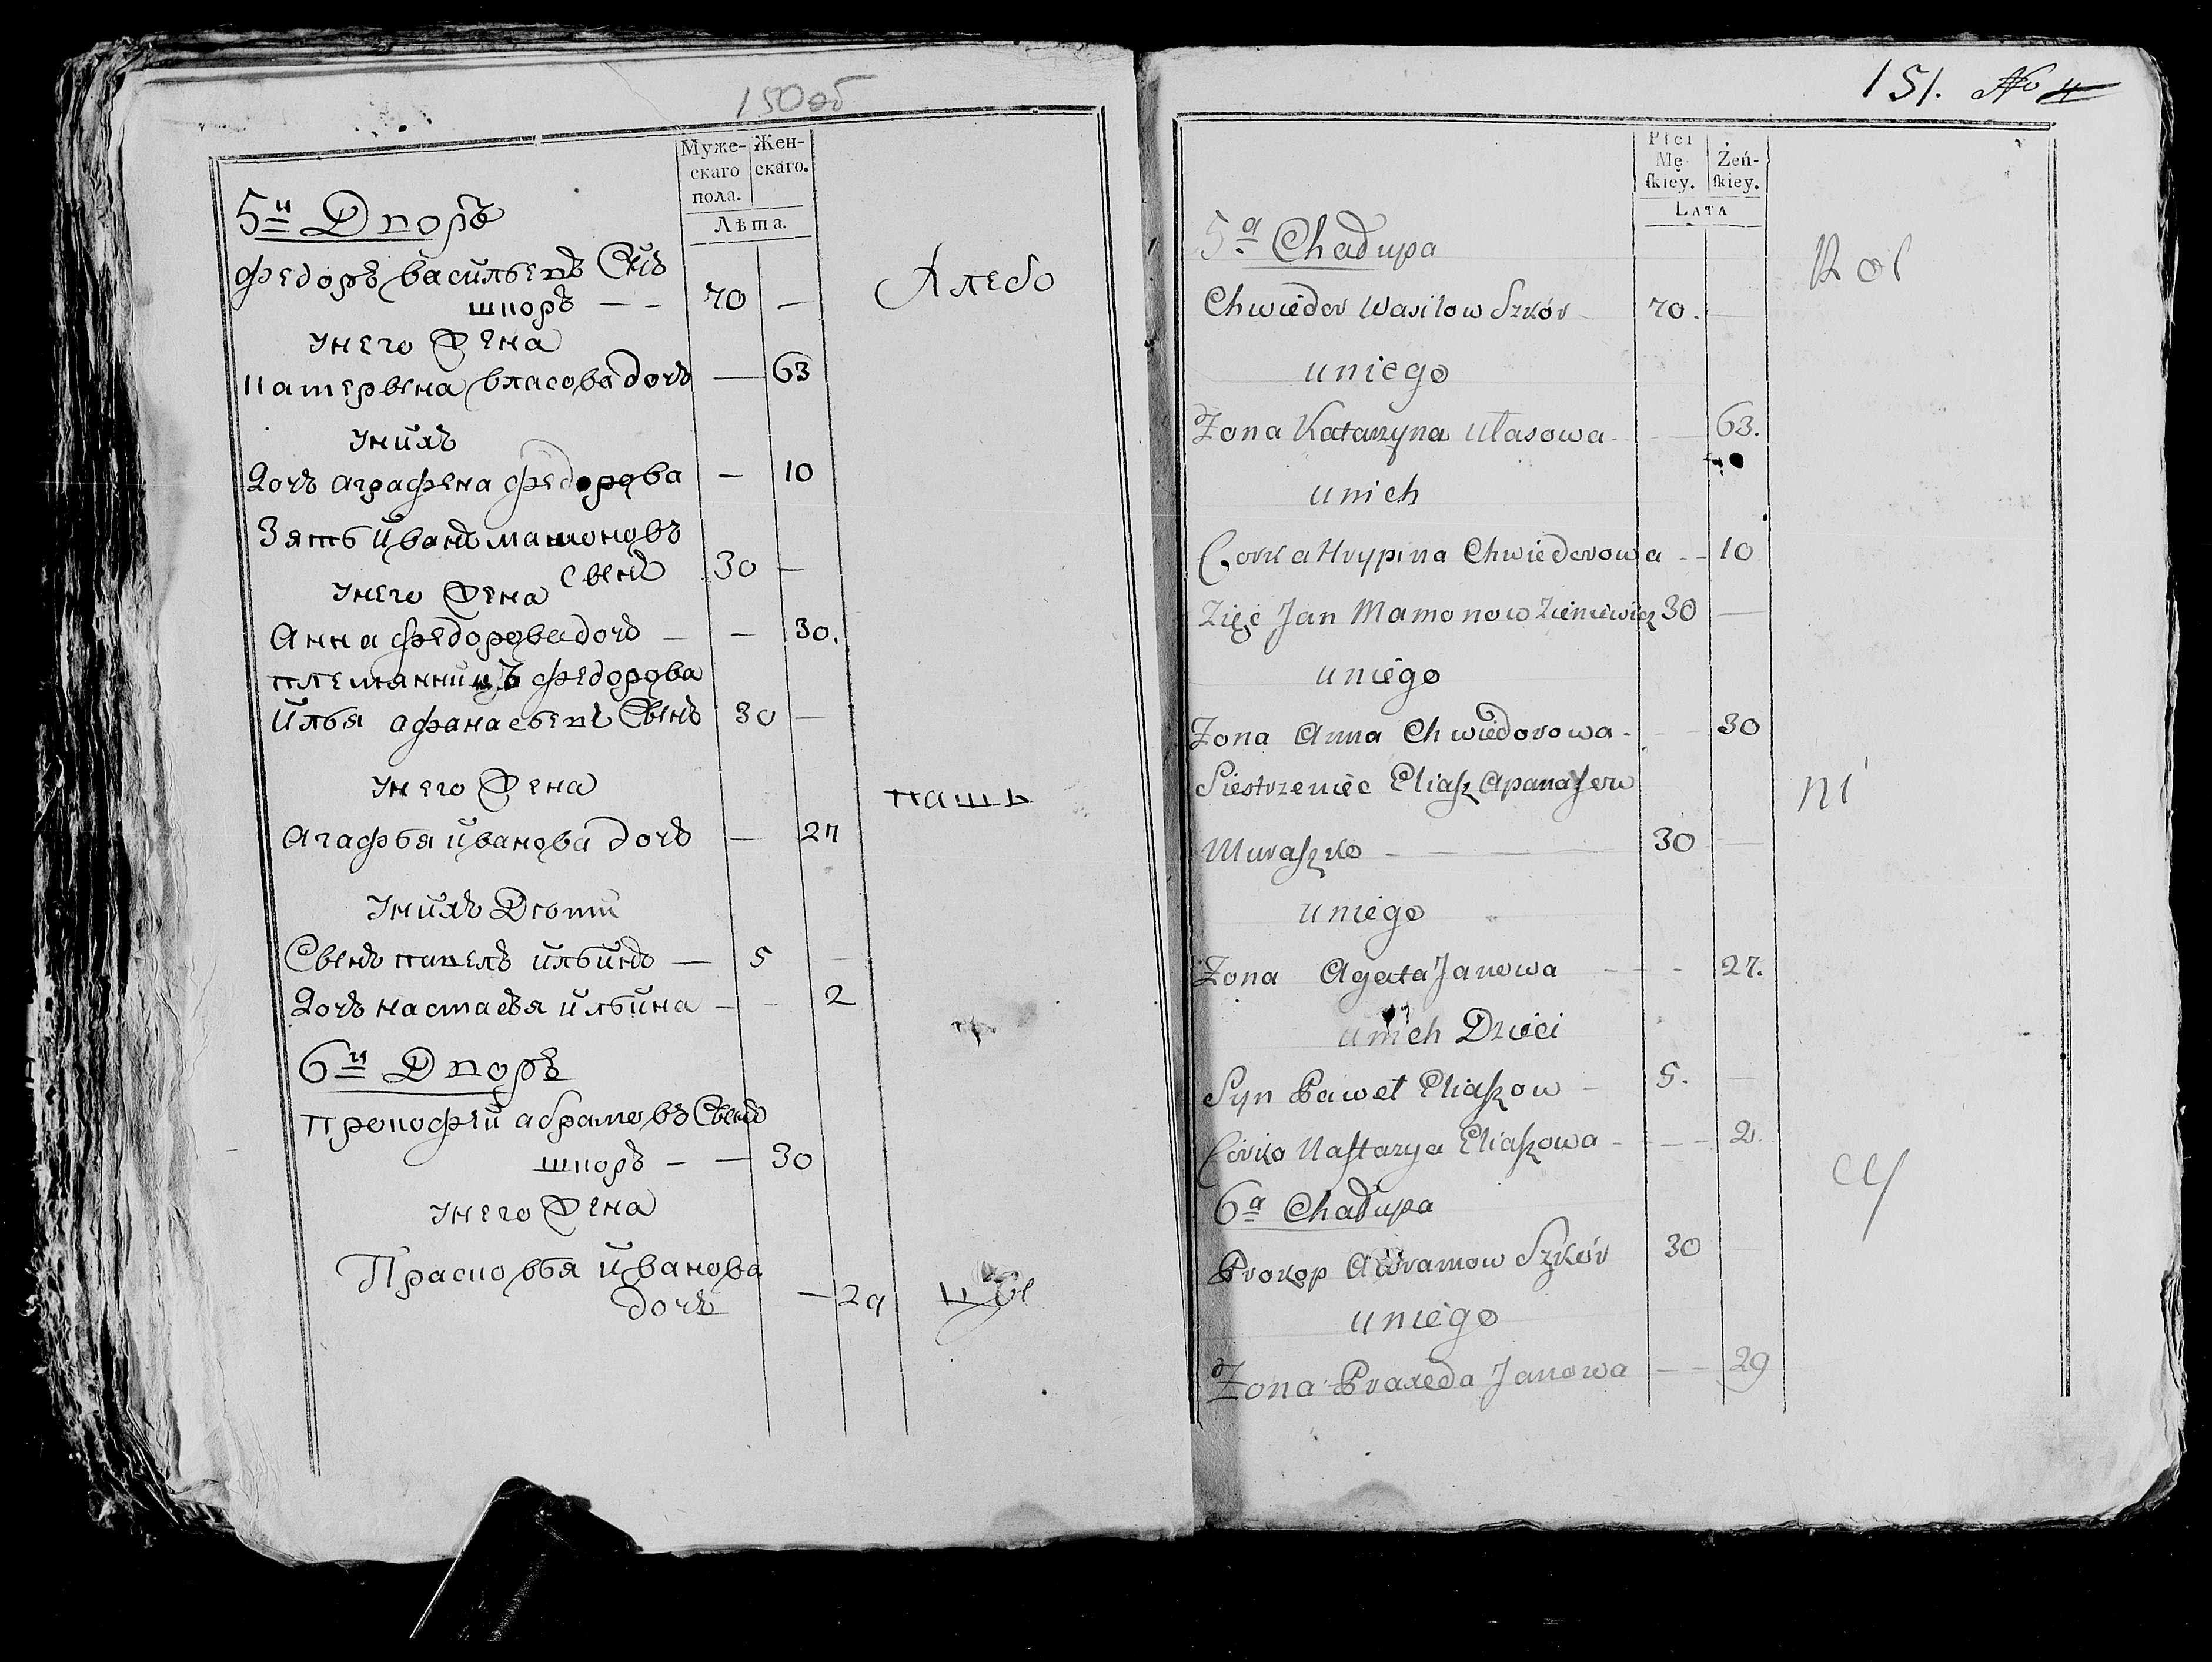 150 об
Муже-
скаго
пола.
Жен-
скаго.
Лѣта.
5й Дворъ
Федоръ Васильевъ Снъ
шкоръ — — 70 —
Хлебо
унего жена
Катерѣна Власова дочъ — 63
унихъ
Дочъ Аграфена Федорова — 10
Зять Иванъ Мамоновъ
Сынъ 30 —
унего жена
Анна Федорова дочъ — — 30.
племянникъ Федорова
Илья Афанасьевъ Сынъ 30 —
унего жена
пашъ
Агафья Иванова дочъ — 27
унихъ Дѣти
Сынъ павелъ ильинъ — 5 —
Дочъ настасья ильина — — 2
6й Дворъ
прокофей абрамовъ Сынъ
шкоръ — — 30
унего жена
Прасковья Иванова
дочъ — 29
151. No 4
Płci
Mę-
ſkiey.
Żeń-
ſkiey.
LATA
5a Chadupa
Rol
Chwiedor Wasilow Szkór 70. —
uniego
Zona Katarzyna Ułasowa — 63.
unich
Corka Hrypina Chwiedorowa — 10
Zięć Jan Mamonow Zieniewicz 30 —
uniego
Zona Anna Chwiedorowa — 30
Siestrzeniec Eliaſz Apanaſew
ni
Muraſzko — — — 30 —
uniego
Zona Agata Janowa — — 27.
unich Dzieci
Syn Paweł Eliaſzow — 5. —
Córka Naſtazya Eliaſzowa — — 2.
cy
6a Chadupa
Prokop Awramow Szkór 30 —
uniego
Zona Praxeda Janowa — — 29